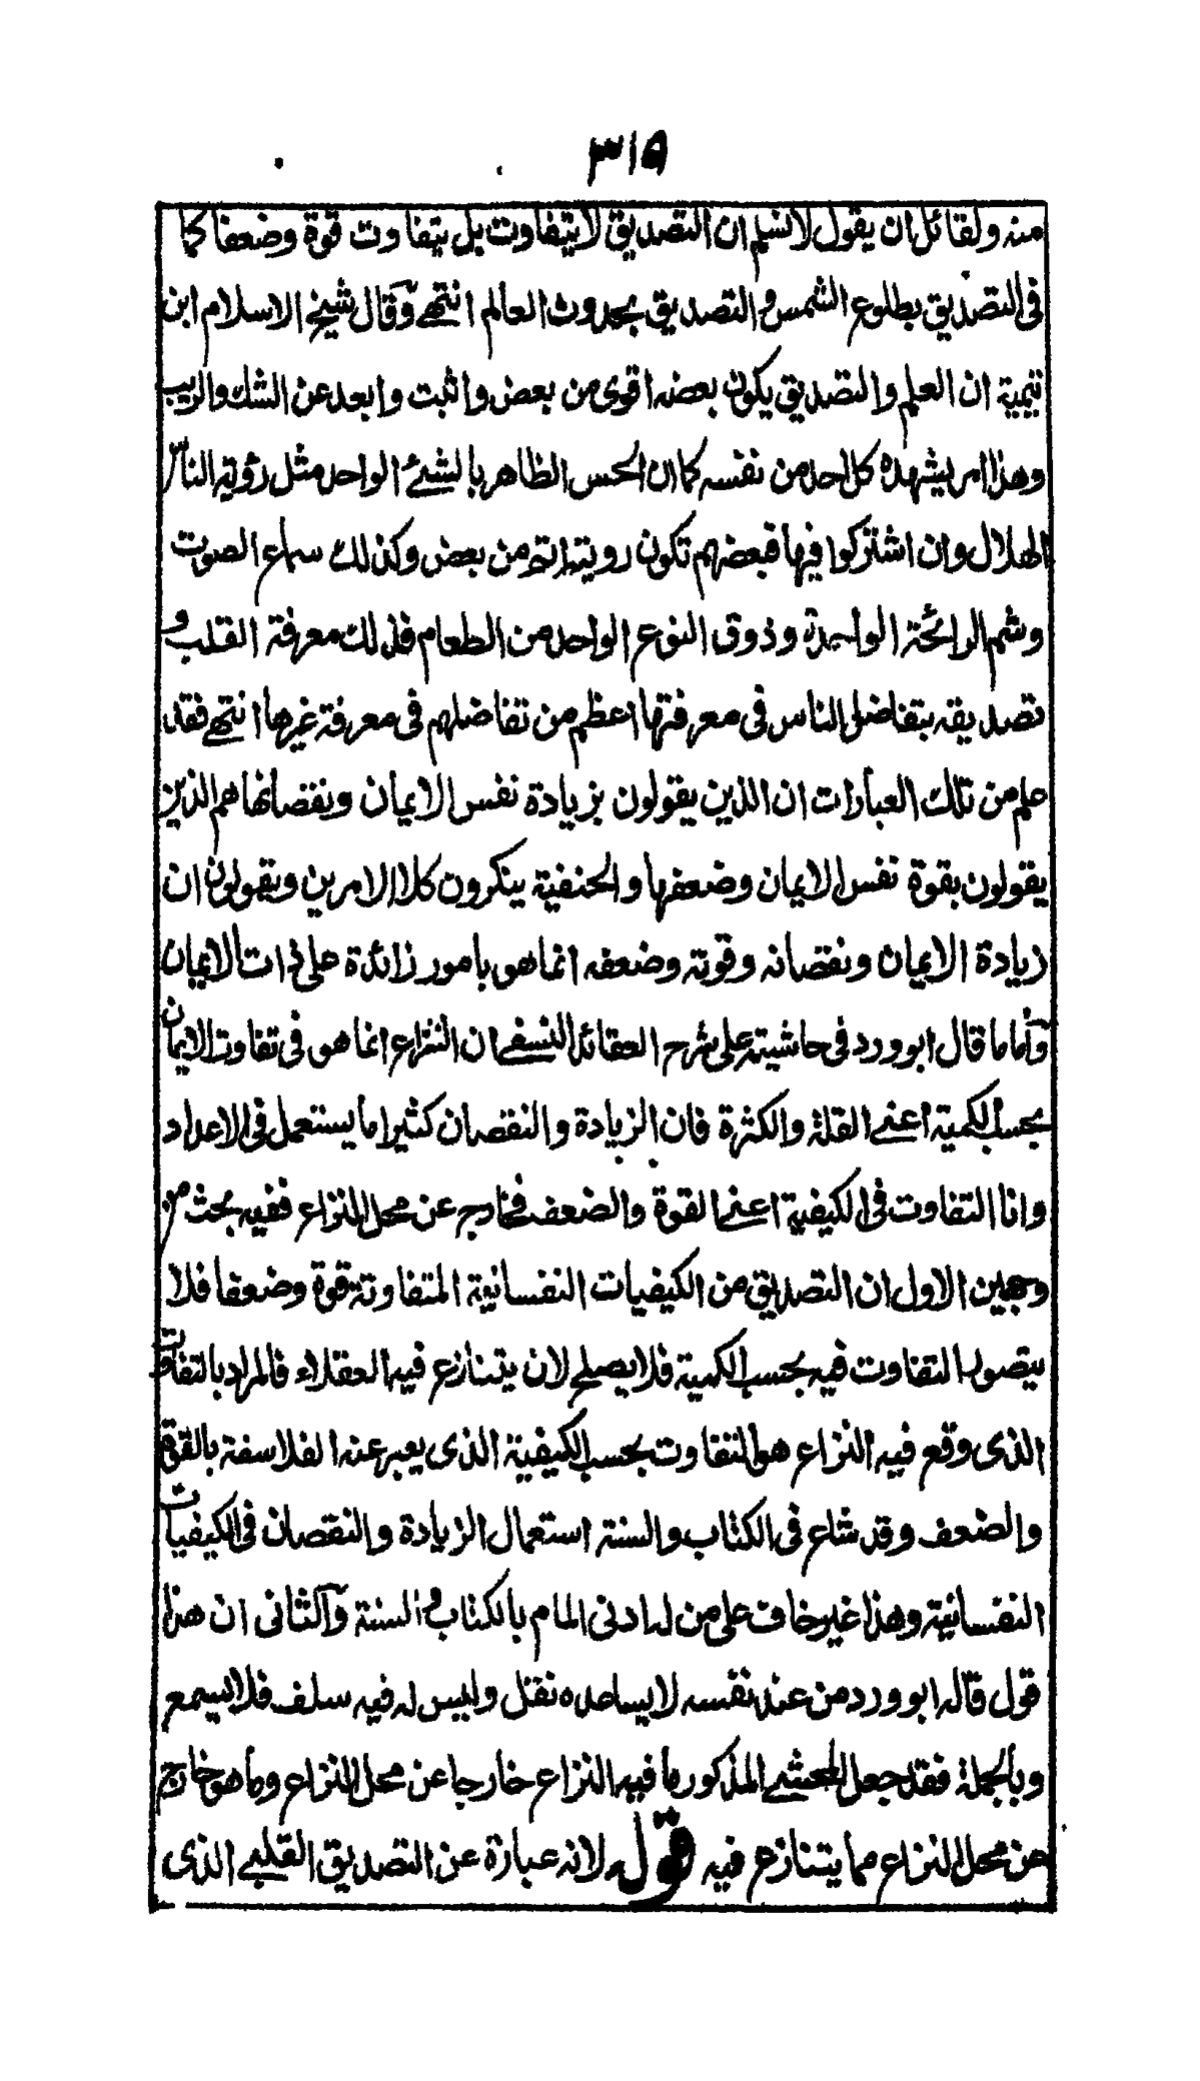 ٣١٥
منه ولقائل ان يقول لا نسلم ان التصديق لا يتفاوت بل يتفاوت قوة وضعفا كما
فى التصديق بطلوع الشمس والتصديق بحدوث العالم انتهے وقال شيخ الاسلام ابن
تيمية ان العلم والتصديق يكون بعضه اقوى من بعض واثبت وابعد عن الشك والريب
وهذا امر يشهده كل احد من نفسه كما ان الحس الظاهر بالشئ الواحد مثل رؤية الناس
الهلال وان اشتركوا فيها فبعضهم تكون رويته اتم من بعض وكذلك سماع الصوت
وشم الرائحة الواحدة وذوق النوع الواحد من الطعام فلذلك معرفة القلب و
تصديقه يتفاضل الناس فى معرفتها اعظم من تفاضلهم فى معرفة غيرها انتهے فقد
علم من تلك العبارات ان الذين يقولون بزيادة نفس الايمان ونقصانها هم الذين
يقولون بقوة نفس الايمان وضعفها والحنفية ينكرون كلا الامرين ويقولون ان
زيادة الايمان ونقصانه وقوته وضعفه انما هو بامور زائدة على ذات الايمان
وأما ما قال ابو ورد فى حاشيته على شرح العقائد النسفے ان النزاع انما هو فى تفاوت الايمان
بحسب الكمية اعنے القلة والكثرة فان الزيادة والنقصان كثيرا ما يستعمل فى الاعداد
وانا التفاوت فى الكيفية اعنے القوة والضعف فخارج عن محل النزاع ففيه بحث من
وجهين الاول ان التصديق من الكيفيات النفسانية المتفاوتة قوة وضعفا فلا
يتصور التفاوت فيه بحسب الكمية فلا يصلح لان يتنازع فيه العقلاء فالمراد بالتفاوت
الذى وقع فيه النزاع هو التفاوت بحسب الكيفية الذى يعبر عنه الفلاسفة بالقوة
والضعف وقد شاع فى الكتاب والسنة استعمال الزيادة والنقصان فى الكيفيات
النفسانية وهذا غير خاف على من له ادنى المام بالكتاب والسنة والثانى ان هذا
قول قاله ابو ورد من عند نفسه لا يساعده نقل وليس له فيه سلف فلا يسمع
وبالجملة فقد جعل المحشے المذكور ما فيه النزاع خارجا عن محل النزاع وما هو خارج
عن محل النزاع مما يتنازع فيه قوله لانه عبارة عن التصديق القلبے الذى